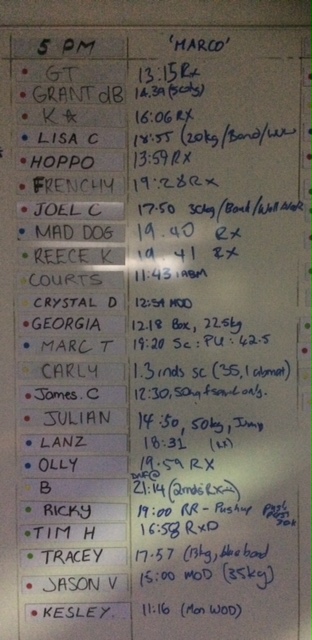 5 PM 'MARCO'
GT 13:15 Rx
GRANT dB 14.39
KA 16:06 RX
LISA C 18:55 (20kg/Band/
HOPPO 13:59 RX
FRENCHY 19:28 RX
JOEL C 17:50 30kg/Band/Wall
MAD DOG 19.40 RX
REECE K 19.41 RX
COURTS 11:43
CRYSTAL D 12:54 MOD
GEORGIA 12.18 Box, 22.5kg
MARC T 19:20 Sc: PU: 42.5
CARLY 1.3 rnds sc (35,
James. C 12:30, 50kg only.
JULIAN 14:50, 50kg, Jump
LANZ 18:31
OLLY 19.59 RX
B 21:14
RICKY 19:00 RR - Pushup
TIM H 16:58 RXD
TRACEY 17.57 (13kg, blue band
JASON V 15:00 MOD (35kg)
KESLEY. 11:16 (Mon WOD)